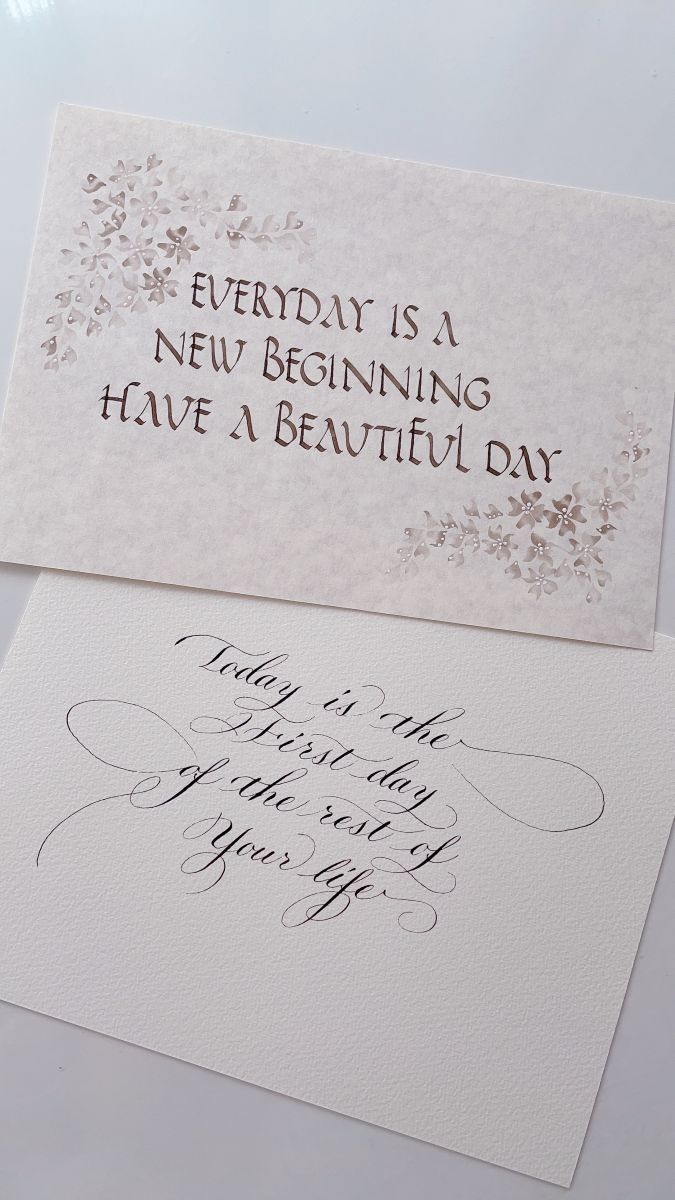 EVERYDAY IS A
NEW BEGINNING
HAVE A BEAUTIFUL DAY
Today is the
First day
of the rest of
Your life